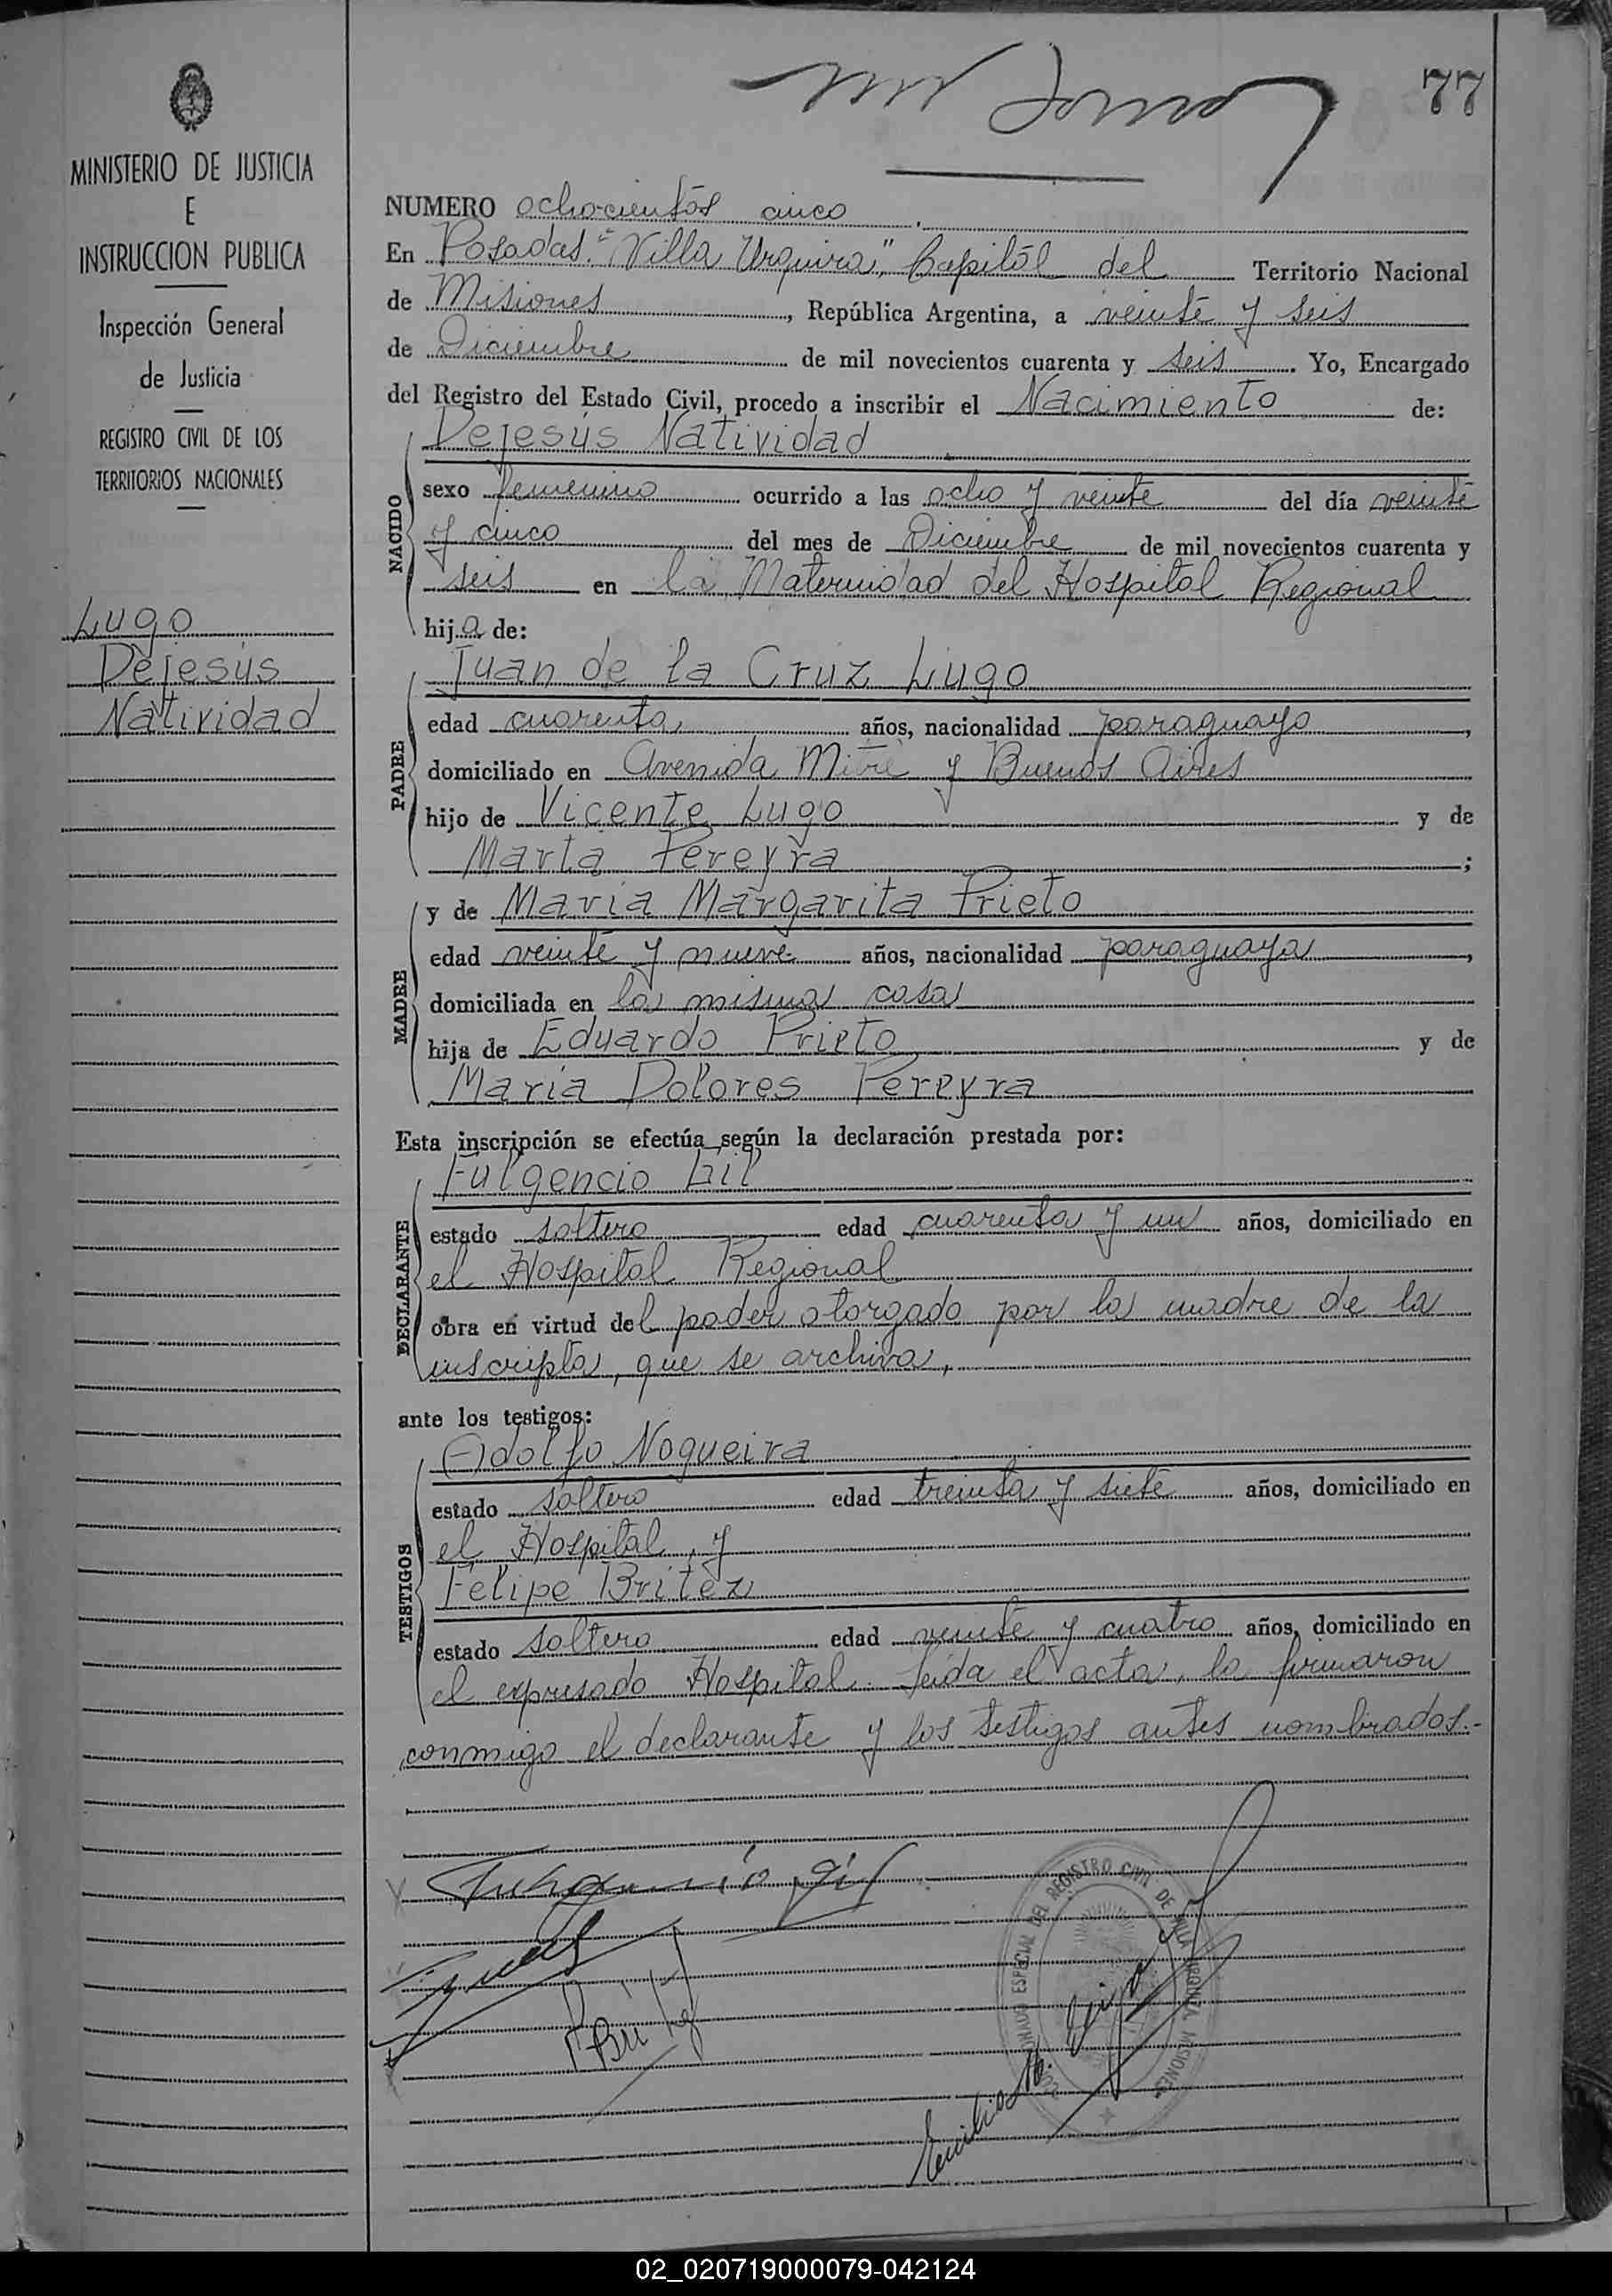 77
MINISTERIO DE JUSTICIA
E
INSTRUCCION PUBLICA
Inspección General
de Justicia
REGISTRO CIVIL DE LOS
TERRITORIOS NACIONALES
Lugo
Dejesús
Natividad
NUMERO ochocientos cinco
En Posadas "Villa Urquiza", Capital del Territorio Nacional
de Misiones, República Argentina, a veinte y seis
de Diciembre de mil novecientos cuarenta y seis. Yo, Encargado
del Registro del Estado Civil, procedo a inscribir el Nacimiento de:
Dejesús Natividad
NACIDO
sexo femenino ocurrido a las ocho y veinte del día veinte
y cinco del mes de Diciembre de mil novecientos cuarenta y
seis en la Maternidad del Hospital Regional
hija de:
Juan de la Cruz Lugo
PADRE
edad cuarenta años, nacionalidad paraguayo,
domiciliado en Avenida Mitre y Buenos Aires
hijo de Vicente Lugo y de
Marta Pereyra;
y de María Margarita Prieto
MADRE
edad veinte y nueve años, nacionalidad paraguaya,
domiciliada en la misma casa
hija de Eduardo Prieto y de
María Dolores Pereyra
Esta inscripción se efectúa según la declaración prestada por:
Fulgencio Gil
DECLARANTE
estado soltero edad cuarenta y un años, domiciliado en
el Hospital Regional
obra en virtud del poder otorgado por la madre de la
inscripta, que se archiva,
ante los testigos:
Adolfo Nogueira
TESTIGOS
estado soltero edad treinta y siete años, domiciliado en
el Hospital, y
Felipe Britez
estado soltero edad veinte y cuatro años, domiciliado en
el expresado Hospital. Leída el acta, la firmaron
conmigo el declarante y los testigos antes nombrados.-
Fulgencio Gil
DEL REGISTRO CIVIL DE VILLA URQUIZA MISIONES
02_020719000079-042124